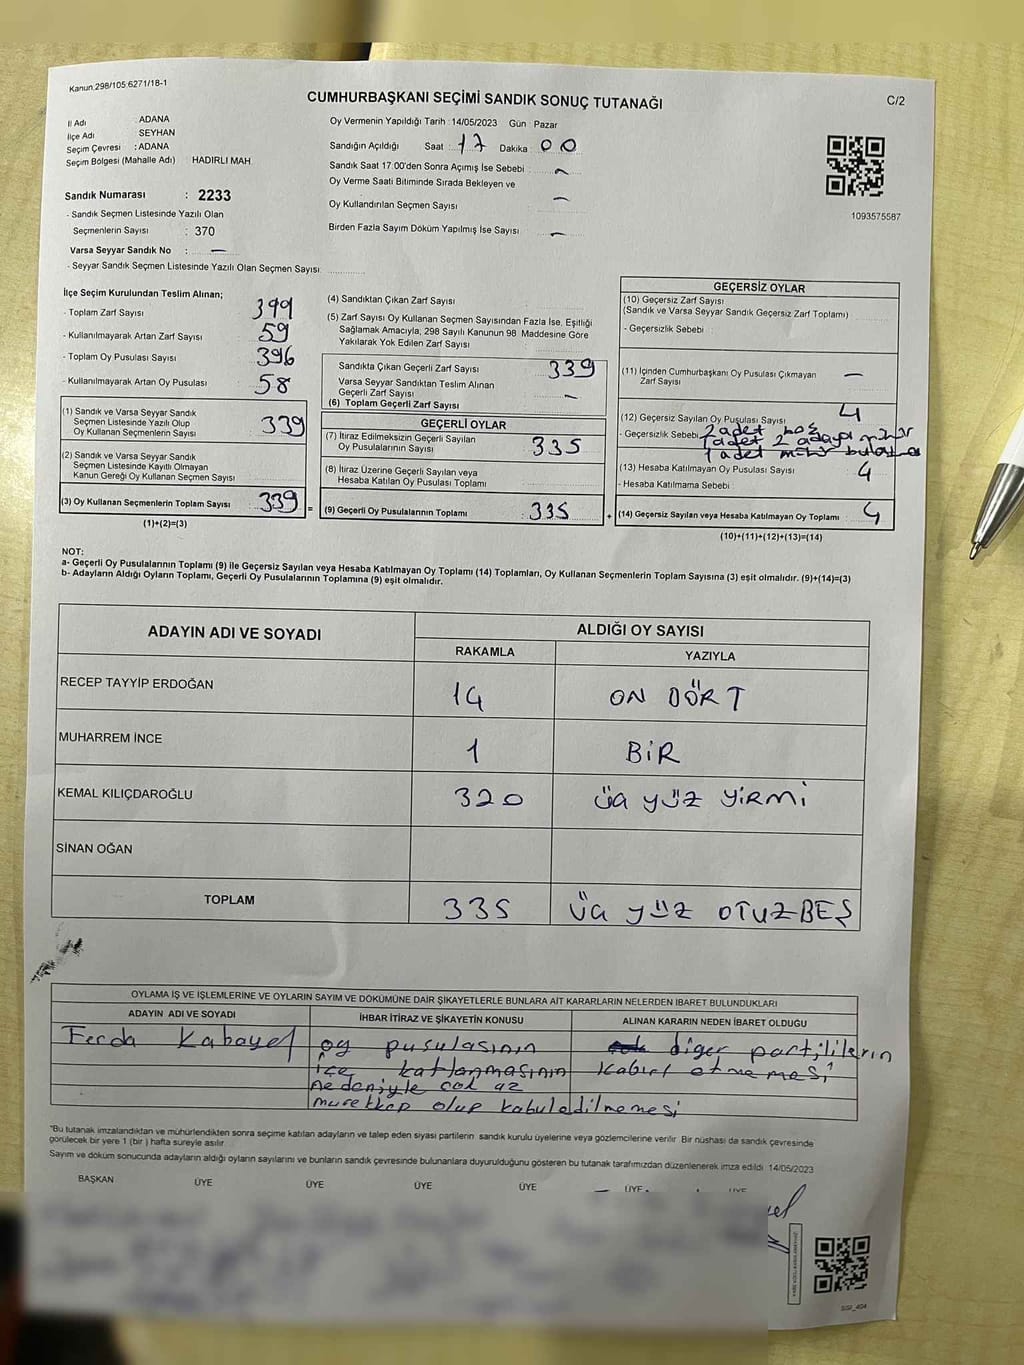 Kanun:298/105:6271/18-1
CUMHURBAŞKANI SEÇİMİ SANDIK SONUÇ TUTANAĞI
C/2
İl Adı : ADANA
İlçe Adı : SEYHAN
Seçim Çevresi : ADANA
Seçim Bölgesi (Mahalle Adı) HADIRLI MAH
Sandık Numarası : 2233
- Sandık Seçmen Listesinde Yazılı Olan
Seçmenlerin Sayısı : 370
Varsa Seyyar Sandık No : —
- Seyyar Sandık Seçmen Listesinde Yazılı Olan Seçmen Sayısı
Oy Vermenin Yapıldığı Tarih : 14/05/2023 Gün : Pazar
Sandığın Açıldığı Saat : 17 Dakika : 00
Sandık Saat 17:00'den Sonra Açımış İse Sebebi :
Oy Verme Saati Bitiminde Sırada Bekleyen ve
Oy Kullandırılan Seçmen Sayısı —
Birden Fazla Sayım Döküm Yapılmış İse Sayısı —
1093575587
İlçe Seçim Kurulundan Teslim Alınan;
- Toplam Zarf Sayısı 399
- Kullanılmayarak Artan Zarf Sayısı 59
- Toplam Oy Pusulası Sayısı 396
- Kullanılmayarak Artan Oy Pusulası 58
(1) Sandık ve Varsa Seyyar Sandık
Seçmen Listesinde Yazılı Olup
Oy Kullanan Seçmenlerin Sayısı 339
(2) Sandık ve Varsa Seyyar Sandık
Seçmen Listesinde Kayıtlı Olmayan
Kanun Gereği Oy Kullanan Seçmen Sayısı
(3) Oy Kullanan Seçmenlerin Toplam Sayısı 339 =
(1)+(2)=(3)
(4) Sandıktan Çıkan Zarf Sayısı
(5) Zarf Sayısı Oy Kullanan Seçmen Sayısından Fazla İse, Eşitliği
Sağlamak Amacıyla, 298 Sayılı Kanunun 98. Maddesine Göre
Yakılarak Yok Edilen Zarf Sayısı
Sandıkta Çıkan Geçerli Zarf Sayısı 339
Varsa Seyyar Sandıktan Teslim Alınan
Geçerli Zarf Sayısı —
(6) Toplam Geçerli Zarf Sayısı
GEÇERLİ OYLAR
(7) İtiraz Edilmeksizin Geçerli Sayılan
Oy Pusulalarının Sayısı 335
(8) İtiraz Üzerine Geçerli Sayılan veya
Hesaba Katılan Oy Pusulası Toplamı
(9) Geçerli Oy Pusulalarının Toplamı : 335 +
GEÇERSİZ OYLAR
(10) Geçersiz Zarf Sayısı
(Sandık ve Varsa Seyyar Sandık Geçersiz Zarf Toplamı)
- Geçersizlik Sebebi
(11) İçinden Cumhurbaşkanı Oy Pusulası Çıkmayan
Zarf Sayısı —
(12) Geçersiz Sayılan Oy Pusulası Sayısı 4
- Geçersizlik Sebebi 2 adet boş
1 adet 2 adaya mühür
1 adet mühür
(13) Hesaba Katılmayan Oy Pusulası Sayısı 4
- Hesaba Katılmama Sebebi
(14) Geçersiz Sayılan veya Hesaba Katılmayan Oy Toplamı 4
(10)+(11)+(12)+(13)=(14)
NOT:
a- Geçerli Oy Pusulalarının Toplamı (9) ile Geçersiz Sayılan veya Hesaba Katılmayan Oy Toplamı (14) Toplamları, Oy Kullanan Seçmenlerin Toplam Sayısına (3) eşit olmalıdır. (9)+(14)=(3)
b- Adayların Aldığı Oyların Toplamı, Geçerli Oy Pusulalarının Toplamına (9) eşit olmalıdır.
ADAYIN ADI VE SOYADI
ALDIĞI OY SAYISI
RAKAMLA YAZIYLA
RECEP TAYYİP ERDOĞAN 14 ON DÖRT
MUHARREM İNCE 1 BİR
KEMAL KILIÇDAROĞLU 320 ÜÇ YÜZ YİRMİ
SİNAN OĞAN
TOPLAM 335 ÜÇ YÜZ OTUZBEŞ
OYLAMA İŞ VE İŞLEMLERİNE VE OYLARIN SAYIM VE DÖKÜMÜNE DAİR ŞİKAYETLERLE BUNLARA AİT KARARLARIN NELERDEN İBARET BULUNDUKLARI
ADAYIN ADI VE SOYADI İHBAR İTİRAZ VE ŞİKAYETİN KONUSU ALINAN KARARIN NEDEN İBARET OLDUĞU
Ferda Kabayel oy pusulasının diğer partililerin
içe katlanmasının kabul etmemesi
nedeniyle çok az
mürekkep olup kabuledilmemesi
"Bu tutanak imzalandıktan ve mühürlendikten sonra seçime katılan adayların ve talep eden siyasi partilerin sandık kurulu üyelerine veya gözlemcilerine verilir. Bir nüshası da sandık çevresinde
görülecek bir yere 1 (bir ) hafta süreyle asılır.
Sayım ve döküm sonucunda adayların aldığı oyların sayılarını ve bunların sandık çevresinde bulunanlara duyurulduğunu gösteren bu tutanak tarafımızdan düzenlenerek imza edildi. 14/05/2023
BAŞKAN ÜYE ÜYE ÜYE ÜYE ÜYE ÜYE